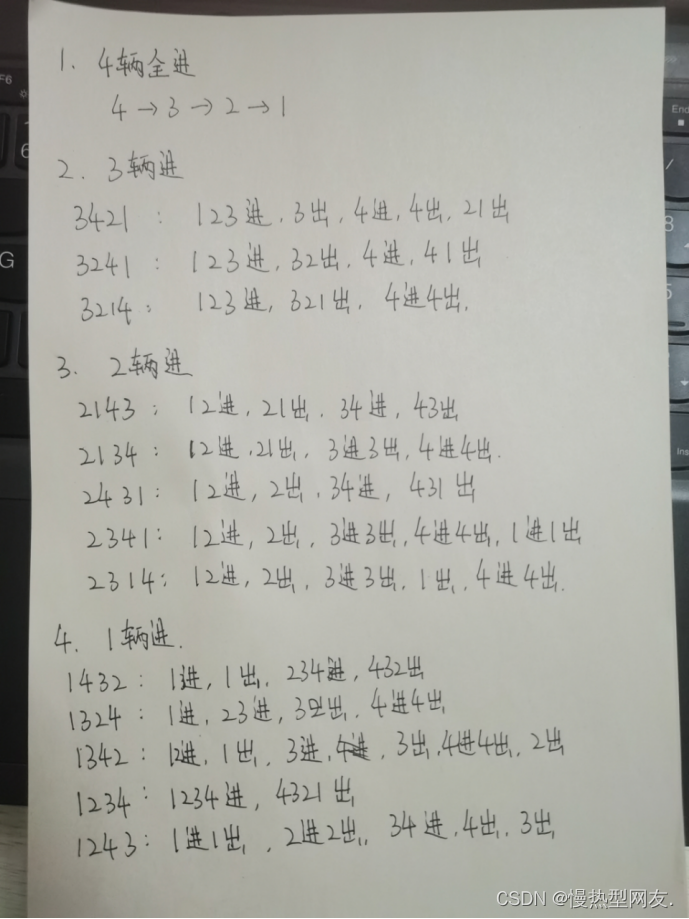 1. 4辆全进
4→3→2→1
2. 3辆进
3421： 123进，3出，4进，4出，21出
3241： 123进，32出，4进，41出
3214： 123进，321出， 4进4出.
3. 2辆进
2143： 12进，21出，34进，43出
2134： 12进，21出，3进3出，4进4出.
2431： 12进，2出，34进， 431出
2341： 12进，2出，3进3出，4进4出，1进1出
2314： 12进，2出，3进3出，1出，4进4出.
4. 1辆进.
1432： 1进，1出， 234进，432出
1324： 1进，23进，32出，4进4出
1342： 12进，1出，3进，3出，4进4出，2出
1234： 1234进，4321出
1243： 1进1出，2进2出，34进，4出，3出
CSDN @慢热型网友.
F6
6
G
End
8
5
Ins